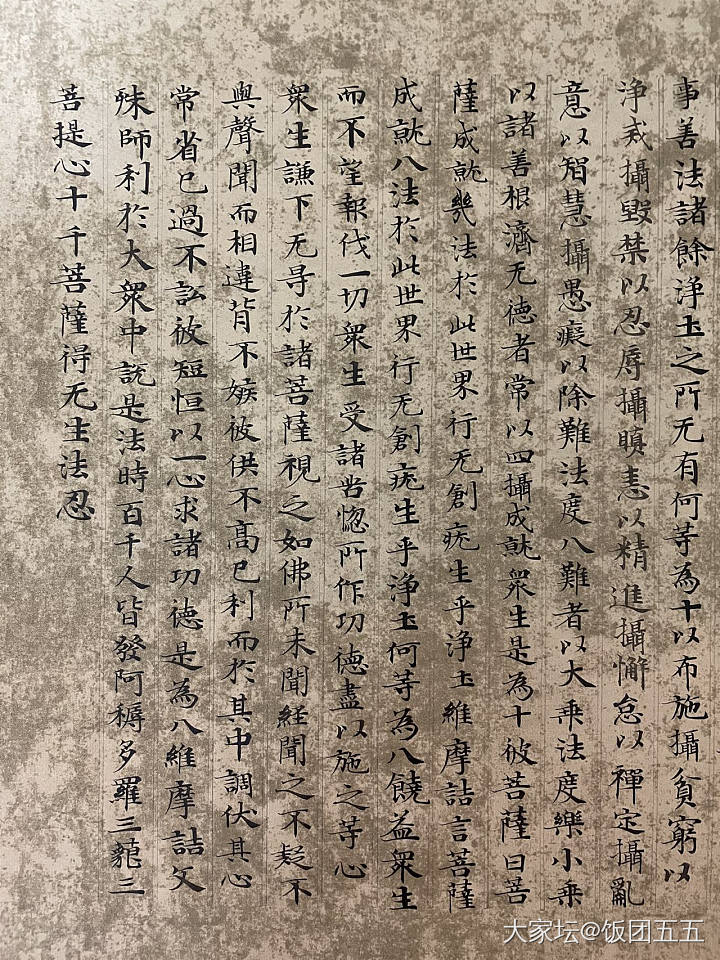 事善法諸餘淨土之所无有何等為十以布施攝貧窮以
淨戒攝毀禁以忍辱攝瞋恚以精進攝懈怠以禪定攝亂
意以智慧攝愚癡以除難法度八難者以大乘法度樂小乘
以諸善根濟无德者常以四攝成就衆生是為十彼菩薩曰菩
薩成就幾法於此世界行无創疣生乎淨土維摩詰言菩薩
成就八法於此世界行无創疣生乎淨土何等為八饒益衆生
而不望報代一切衆生受諸苦惱所作功德盡以施之等心
衆生謙下无㝵於諸菩薩視之如佛所未聞経聞之不疑不
與聲聞而相違背不嫉彼供不髙己利而於其中調伏其心
常省己過不訟彼短恒以一心求諸功德是為八維摩詰文
殊師利於大衆中說是法時百千人皆發阿耨多羅三藐三
菩提心十千菩薩得无生法忍
大家坛@饭团五五